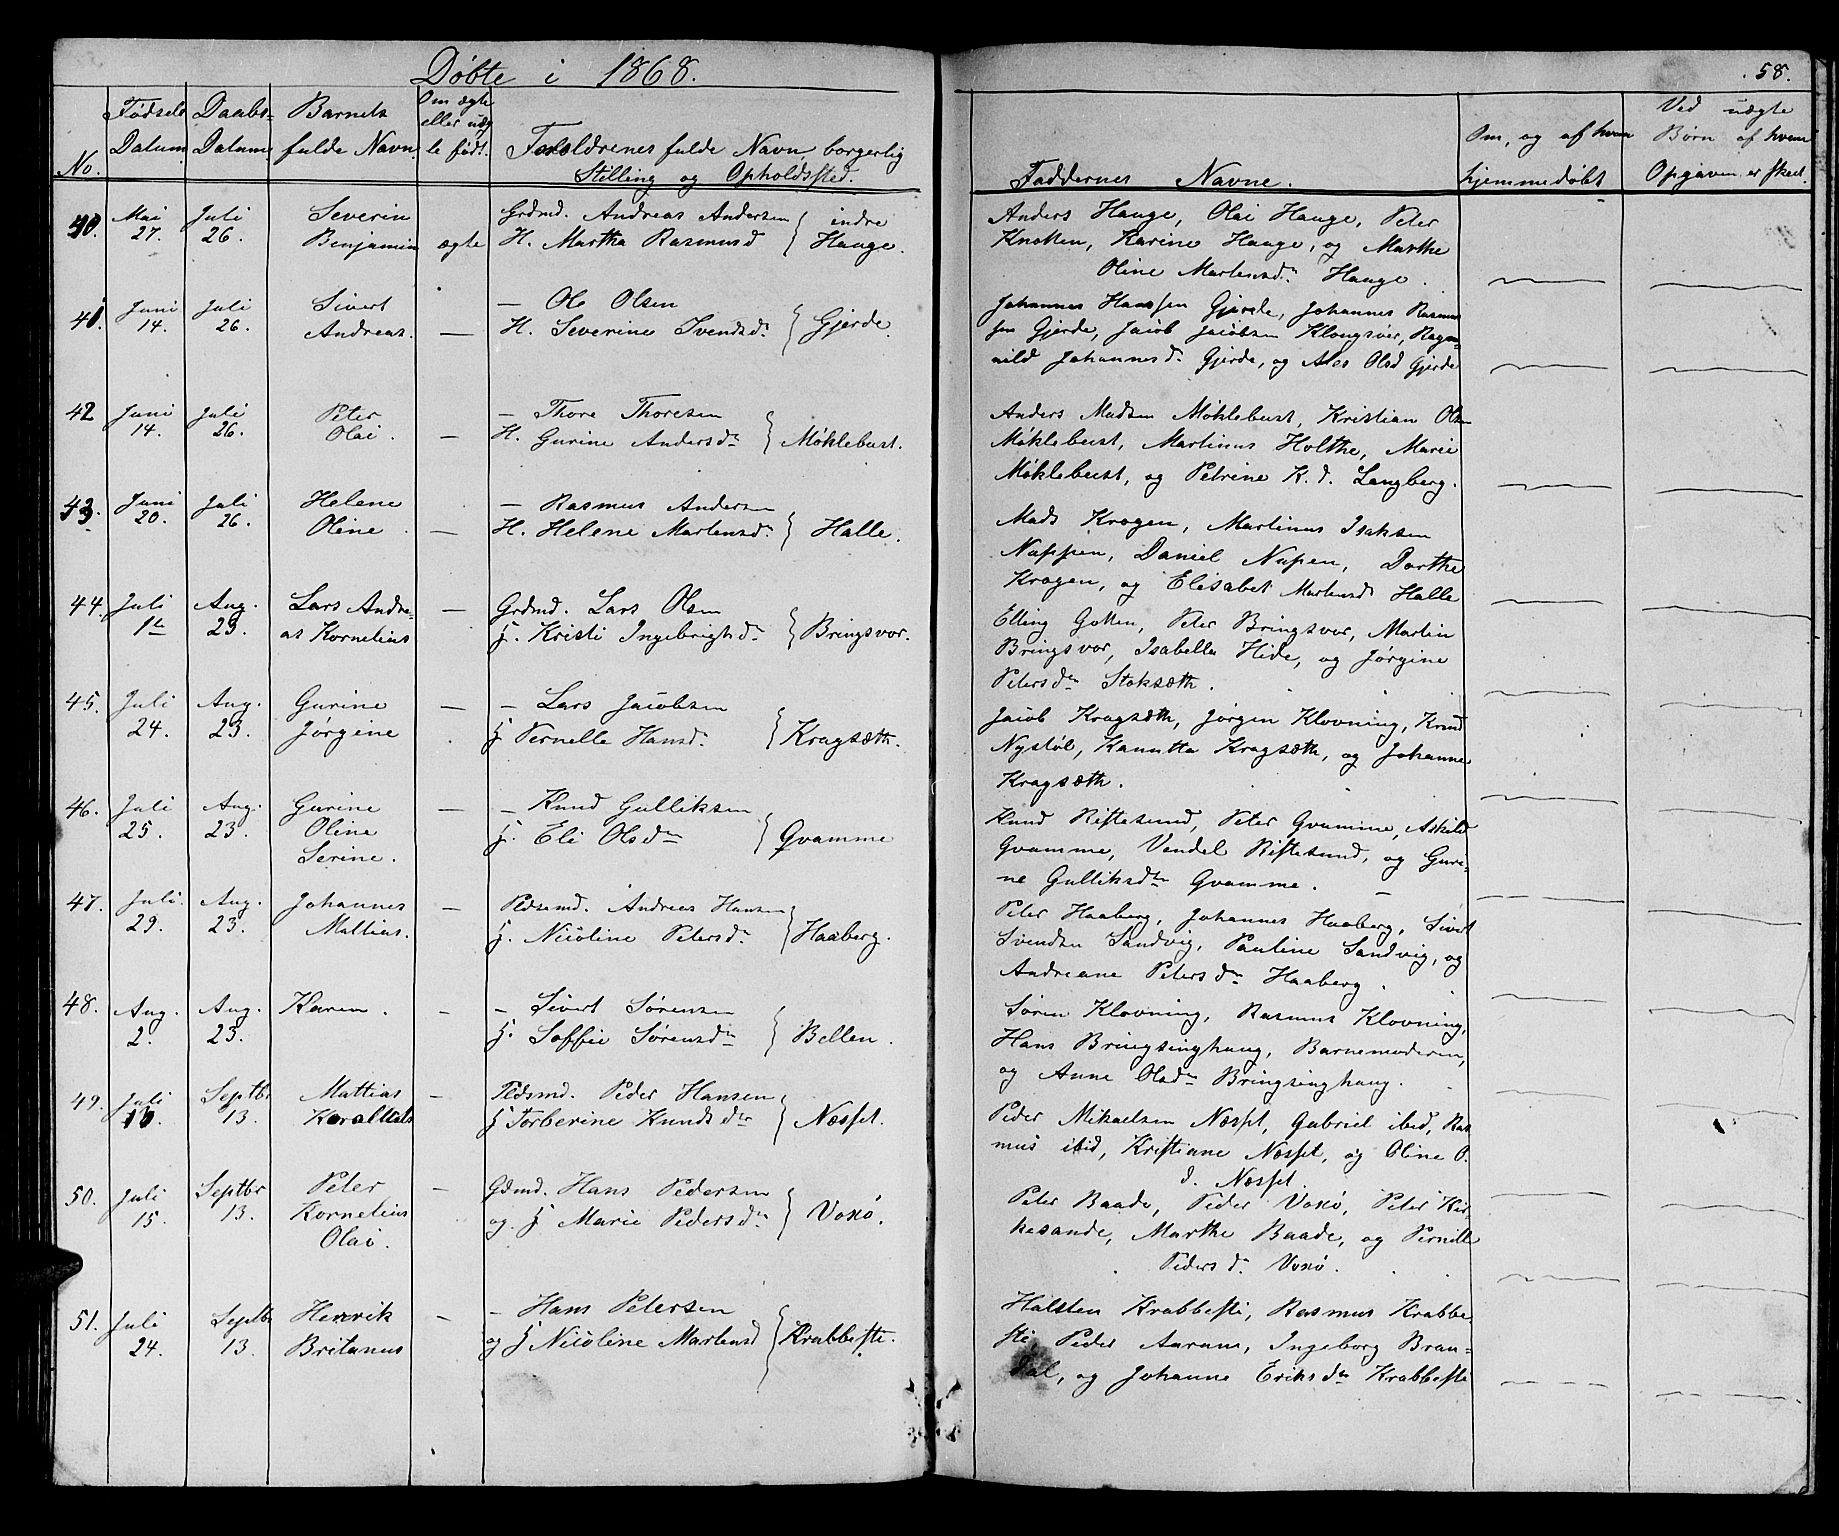 Døbte i 1868.
58.
No.
Fødsels Datum
Daabs- Datum
Barnets fulde Navn
Om ægte eller uæg te født.
Forældrenes fulde Navn, borgerlig
Stilling og Opholdssted.
Faddernes Navne.
Om, og af hvem
hjemmedøbt
Ved uægte
Børn af hvem
Opgaven er skeet.
40. Mai 27. Juli 26. Severin Benjamin ægte
Grdmd. Andreas Andersen
H. Martha Rasmusd } indre Hauge.
Anders Hauge, Olai Hauge, Peter
Knotten, Karine Hauge, og Marthe
Oline Martensdr Hauge.
41. Juni 14. Juli 26. Sivert Andreas. —
— Ole Olsen
H. Severine Svendsdr } Gjerde.
Johannes Hanssen Gjerde, Johannes Rasmus
sen Gjerde, Jacob Jacobsen Klongsvær, Ragn-
nild Johannesdr Gjerde, og Ales Olsd Gjerde
42 Juni 14. Juli 26. Peter Olai. —
— Thore Thoresen
H. Gurine Andersdr } Møklebust.
Anders Madsen Møklebust, Kristian Olsen
Møklebust, Martinus Holthe, Marie
Møklebust, og Petrine K. d. Langberg.
43. Juni 20. Juli 26. Helene Oline. —
— Rasmus Andersen
H. Helene Martensdr } Halle.
Mads Kragen, Martinus Isaksen
Nappen, Daniel Nupen, Dorthe
Kragen, og Elisabet Martensd Halle
44. Juli 1te Aug. 23. Lars Andre- as Kornelius —
Grdmd. Lars Olsen
H. Kristi Ingebrigtsdr } Bringsvor.
Elling Gotten, Peter Bringsvor, Martin
Bringsvor, Isabella Hide, og Jørgine
Petersdr Stoksæth.
45. Juli 24. Aug. 23. Gurine Jørgine —
— Lars Jacobsen
H. Pernelle Hansdr } Kragsæth.
Jacob Kragsæth, Jørgen Klovning, Knud
Nystøl, Kanutta Kragsæth, og Johanne
Kragsæth.
46. Juli 25. Aug. 23. Gurine Oline Serine. —
— Knud Gulliksen
H. Eli Olsdr } Qvamme
Knud Riftesund, Peter Qvamme, Askild
Qvamme, Vendel Riftesund, og Guri-
ne Gulliksdr Qvamme. —
47. Juli. 29. Aug. 23. Johannes Mattias. —
Pdsmd. Andreas Hansen
H. Nicoline Petersdr } Haaberg.
Peter Haaberg, Johannes Haaberg, Sivert
Svendsen Sandvig, Pauline Sandvig, og
Andreane Petersdr Haaberg.
48. Aug. 2. Aug. 23. Karen. —
— Sivert Sørensen
H. Soffie Sørensdr } Bellen.
Søren Klovning, Rasmus Klovning,
Hans Bringsinghaug, Barnemoderen,
og Anne Olsdr Bringsinghaug.
49. Juli Septbr 13. Mattias —
Pdsmd. Peder Hansen
H Torberine Knudsdr } Næsset.
Peder Mikaelsen Næsset, Gabriel ibid, Ras
mus ibid, Kristiane Næsset, og Oline O.
d. Næsset.
50. Juli 15. Septbr 13. Peter Kornelius Olai. —
Gdmd. Hans Pedersen
og H Marie Pedersdr } Voxø.
Peter Baade, Peder Voxø, Peter Kir
kesande, Marthe Baade, og Pernille
Pedersdr. Voxø.
51. Juli 24. Septbr 13. Henrik Britanus —
— Hans Petersen
og H Nicoline Martensd } Krabbesti.
Halsten Krabbesti, Rasmus Krabbe
sti Peder Aaram, Ingeborg Bran-
dal, og Johanne Eriksdr Krabbesti